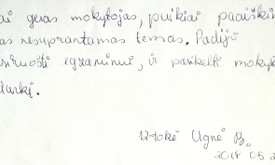 ai geras mokytojas, puikiai paaiškin
as nesuprantamas temas. Padėjo
ruošti egzaminui, ir pasikelti moky
12-tokė Ugnė B.
2018.05.2